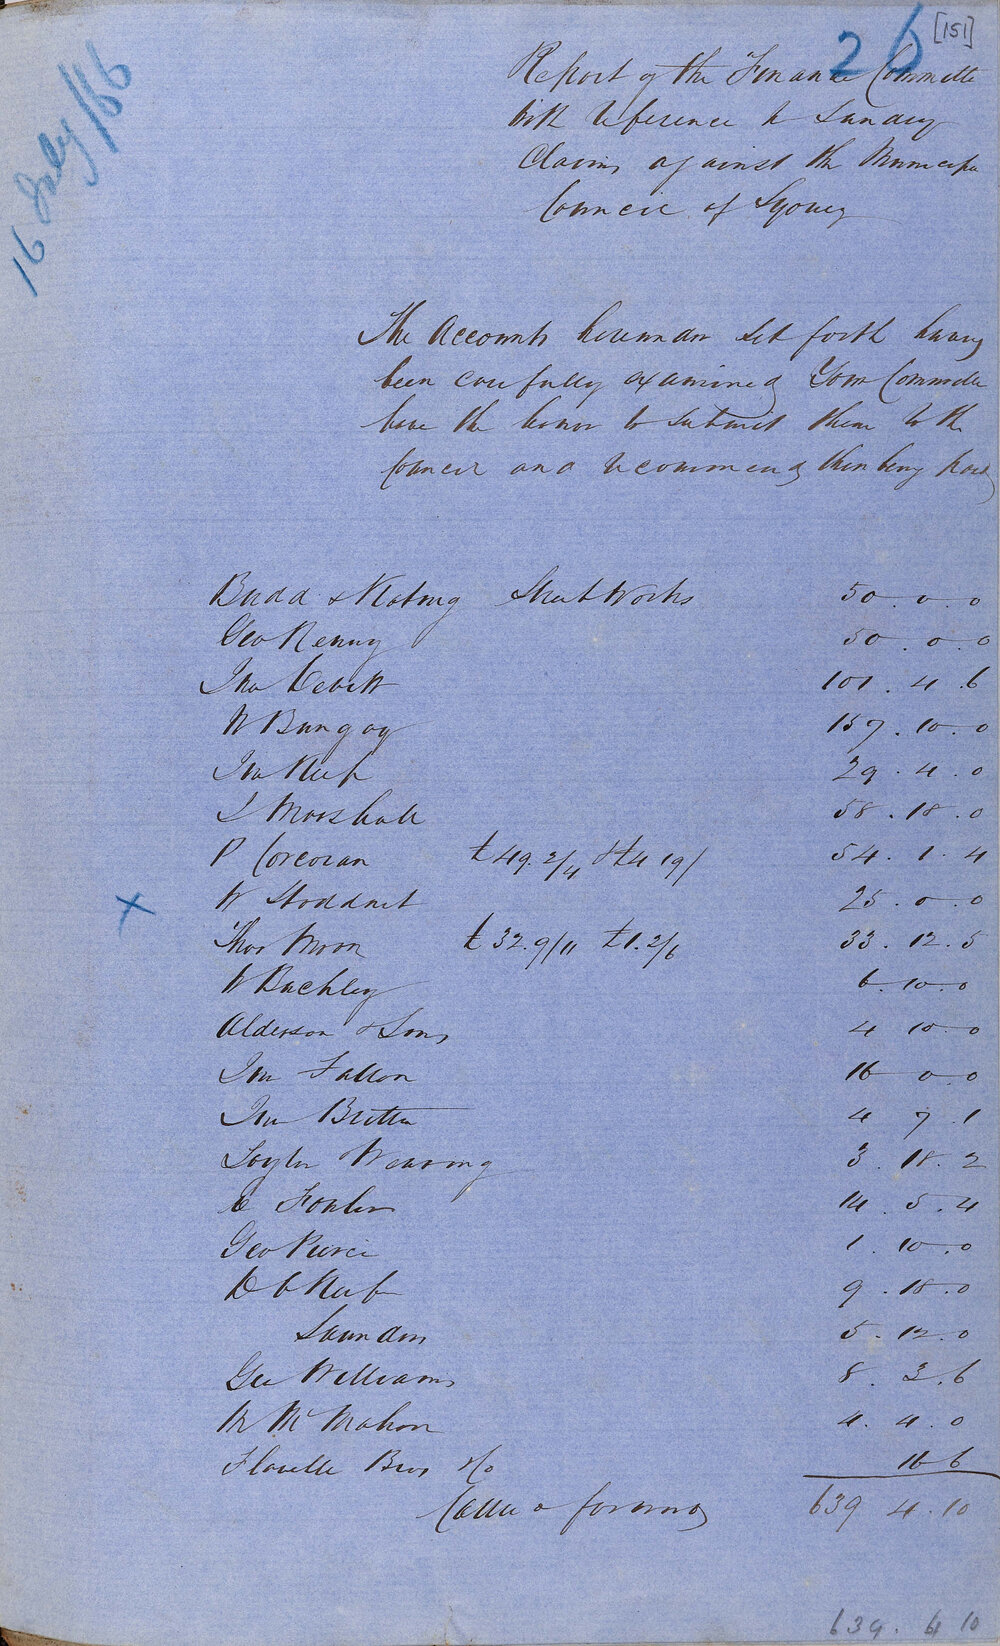 [151]
26
16 July/66
Report of the Finance Committe
with reference to Sundry
Claims against the Municipa
Council of Sydney
The Accounts hereunder set forth having
been carefully examined Your Committee
have the honor to submit them to the
Council and recommend their being paid
Budd & Street Works 50 . 0 . 0
Geo Renny 50 . 0 . 0
Jno 101 . 4 . 6
W Bungay 157 . 10 . 0
Jno Keep 29 . 4 . 0
J Marshall 58 . 18 . 0
P Corcoran £49. 2/4 & £4 19/ 54 . 1 . 4
X W Stoddart 25 . 0 . 0
Thos Moon £32. 9/11 £1. 2/6 33 . 12 . 5
W Buckley 6 . 10 . 0
Alderson & Sons 4 10 . 0
Jno Fallon 16 0 . 0
Jno Britten 4 7 . 1
Weaving 3 . 18 . 2
E Fowler 14 . 5 . 4
Geo Pierce 1 . 10 . 0
Keep 9 . 18 . 0
Saunders 5 . 12 . 0
Geo Williams 8 . 3 . 6
M McMahon 4 . 4 . 0
Flavelle Bros & Co 16 6
Carried forward 639 4 . 10
639 . 4 10